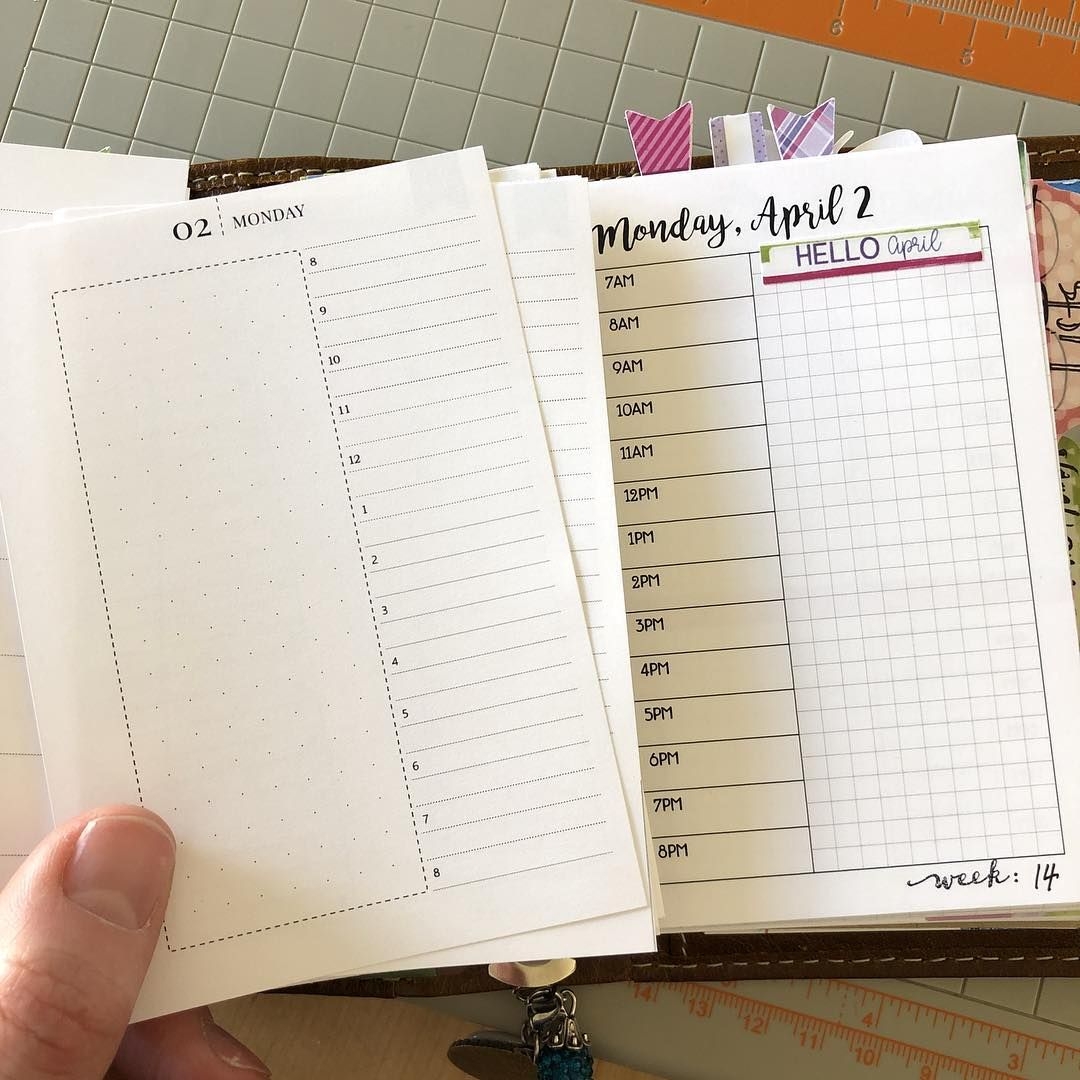 02 MONDAY
8
9
10
11
12
1
2
3
4
5
6
7
8
Monday, April 2
HELLO april
7AM
8AM
9AM
10AM
11AM
12PM
1PM
2PM
3PM
4PM
5PM
6PM
7PM
8PM
week: 14
6
5
14
13
12
11
10
9
4
3